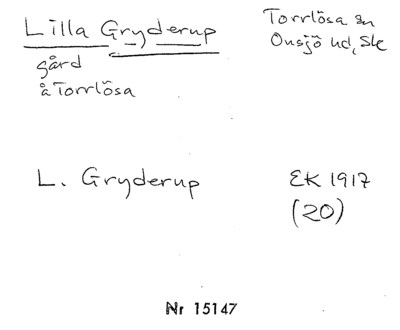 Lilla Gryderup
gård
å Torrlösa
Torrlösa sn
Onsjö hd, Sk
L. Gryderup
EK 1917
(20)
Nr 15147